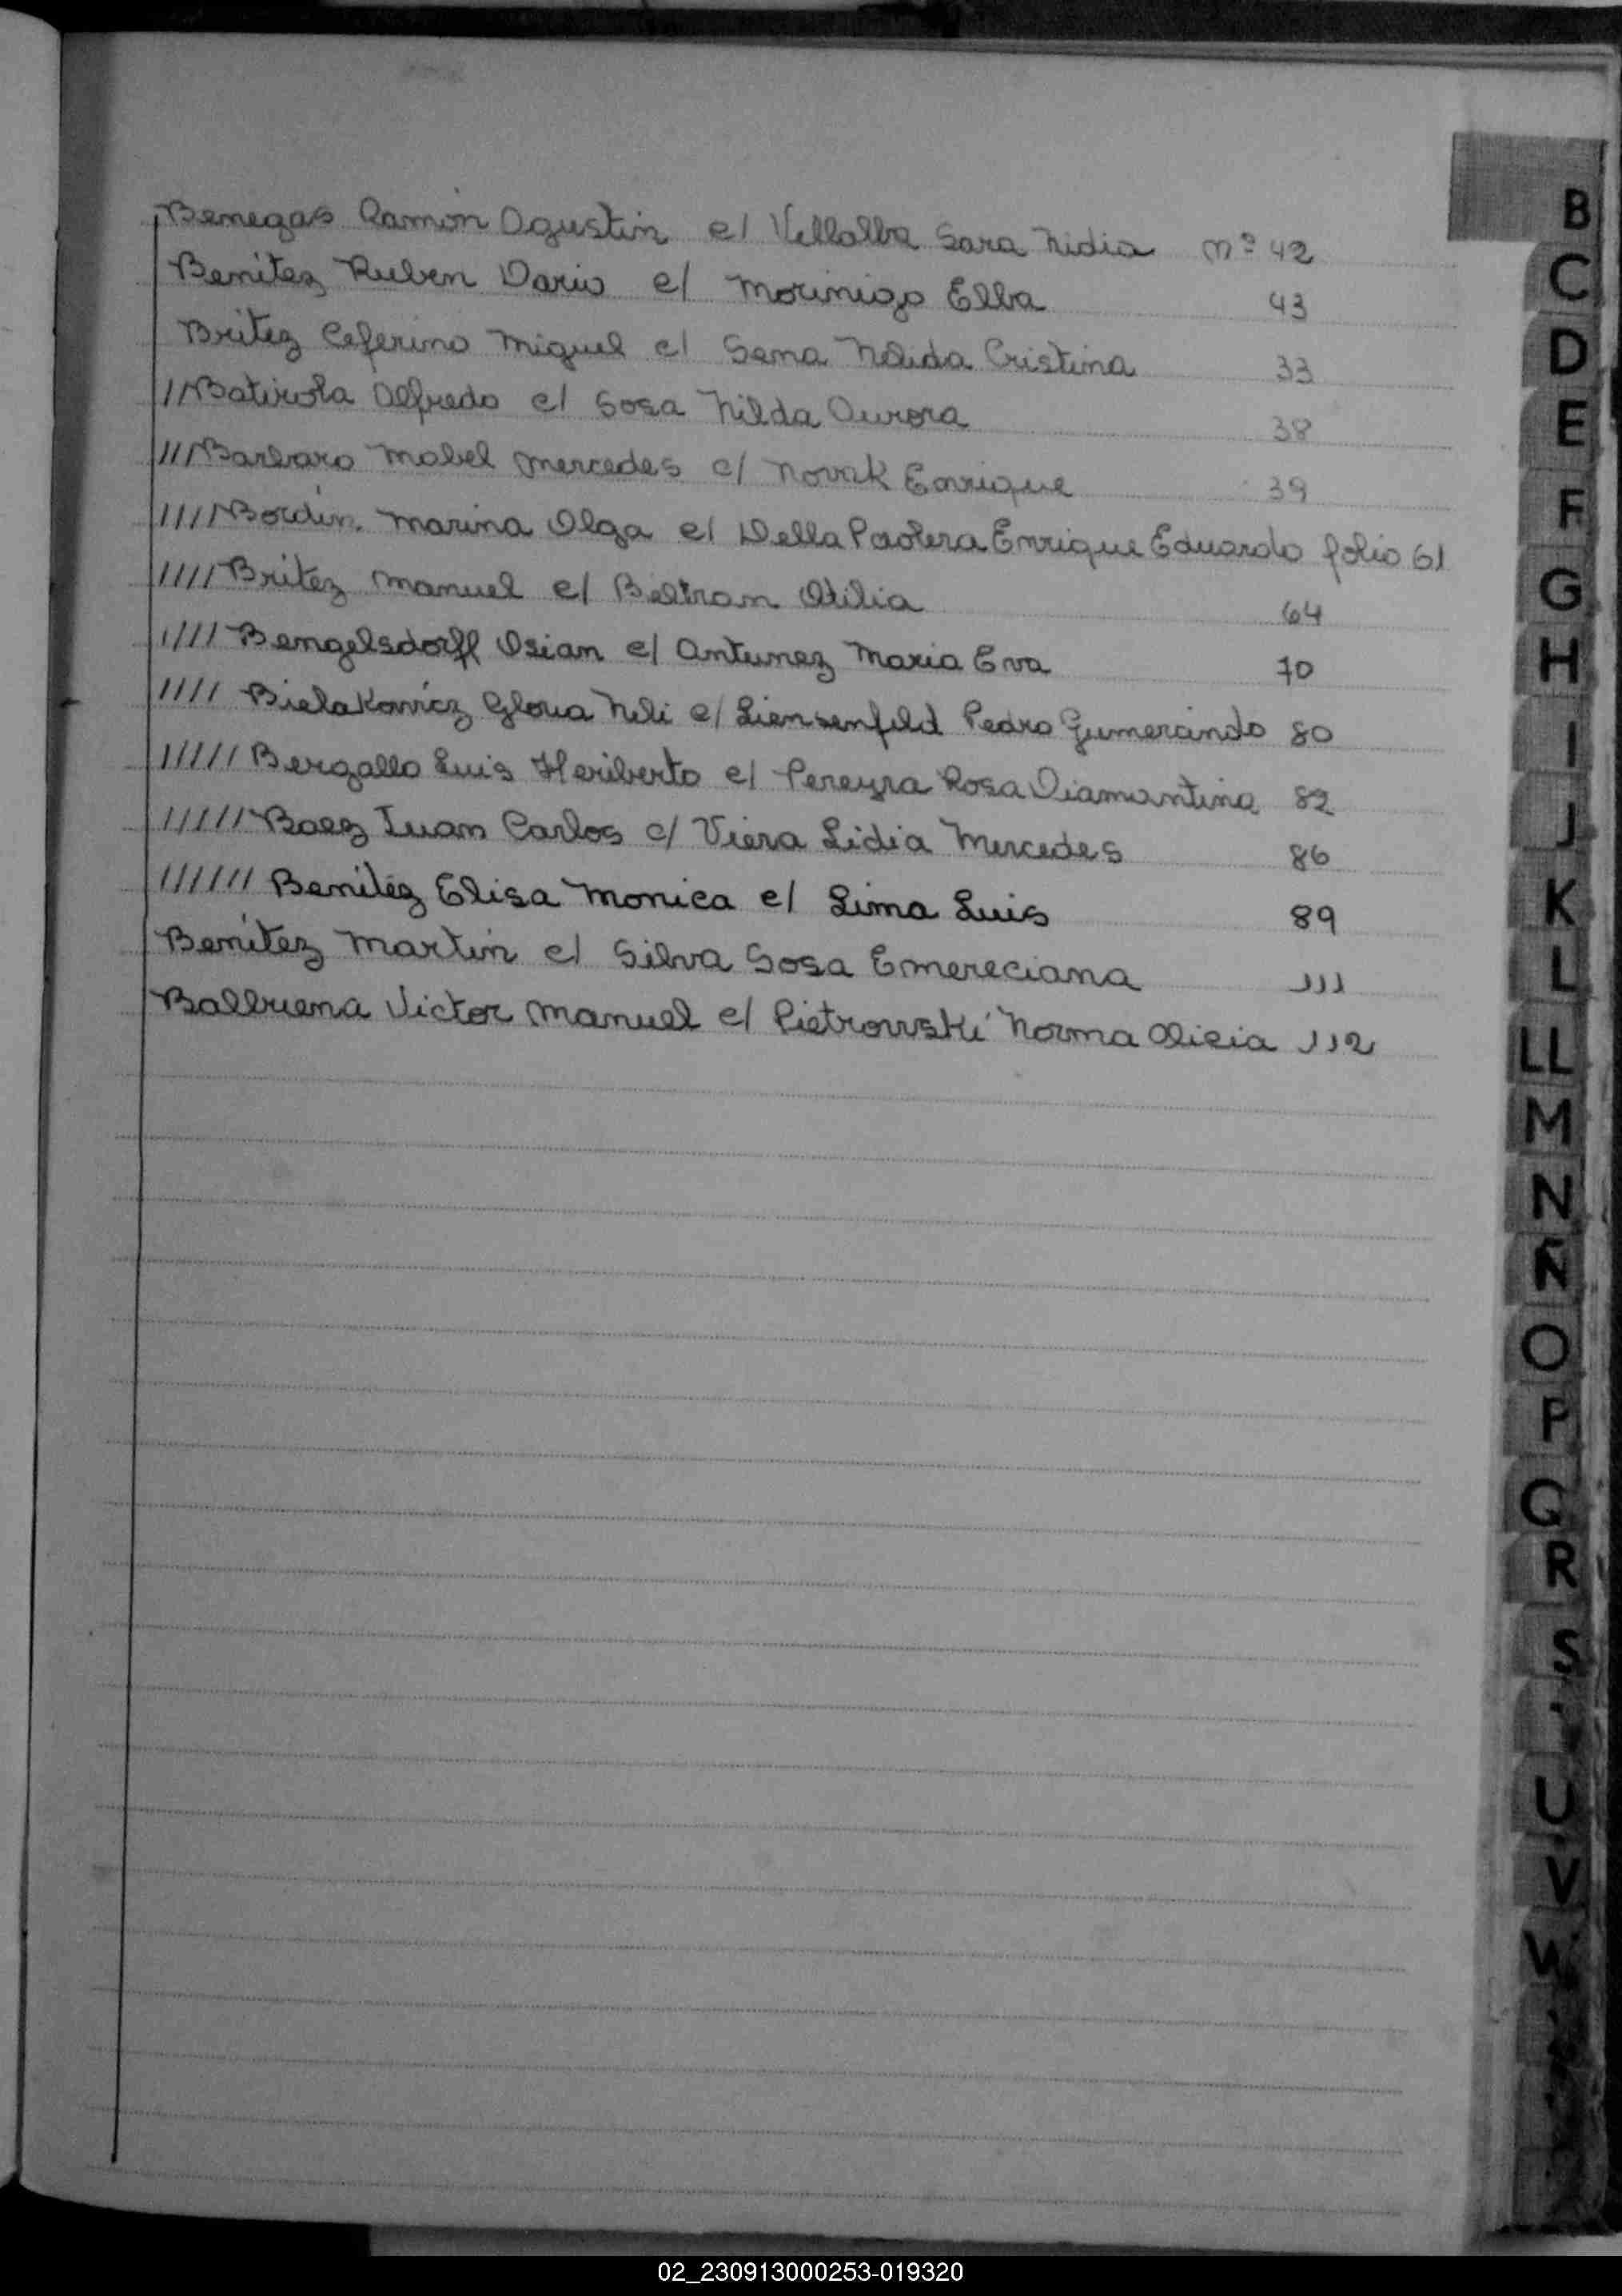 Benegas Ramón Agustin c/ Villalba Sara Nidia Nº 42
Benítez Ruben Dario c/ Morinigo Elba 43
Britez Ceferino Miguel c/ Sena Nélida Cristina 33
//Batirola Alfredo c/ Sosa Nilda Aurora 38
///Barbaro Mabel Mercedes c/ Novak Enrique 39
////Bordin. Marina Olga c/ Della Paolera Enrique Eduardo folio 61
////Britez Manuel c/ Beltran Otilia 64
////Bengelsdorff Osian c/ Antunez Maria Eva 70
//// Bielakowicz Gloria Neli c/ Liensenfeld Pedro Gumercindo 80
/////Bergallo Luis Heriberto c/ Pereyra Rosa Diamantina 82
/////Baez Juan Carlos c/ Viera Lidia Mercedes 86
////// Benitez Elisa Monica c/ Lima Luis 89
Benítez Martin c/ Silva Sosa Emereciana 111
Balbuena Victor Manuel c/ Pietrowski Norma Alicia 112
B
C
D
E
F
G
H
I
J
K
L
LL
M
N
Ñ
O
P
Q
R
S
U
V
W
02_230913000253-019320